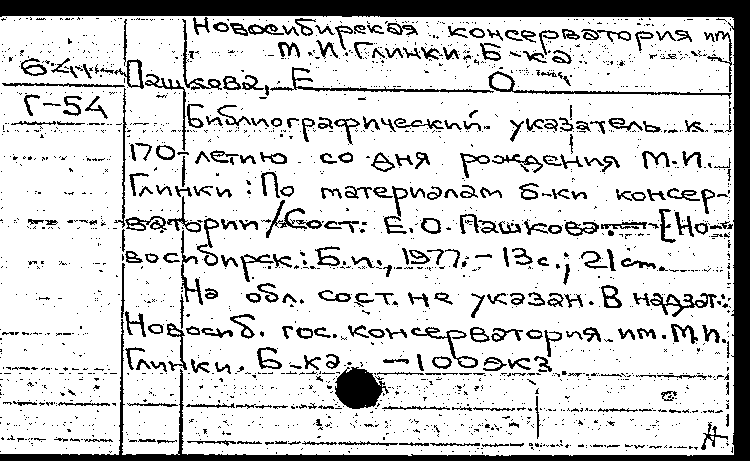 Новосибирская консерватория им
М.И.Глинки. Б-ка
Пашкова, Е О
Г-54
Библиографический указатель к
170-летию со дня рождения М.И.
Глинки: По материалам б-ки консер-
ватории/Сост. Е.О.Пашкова. — [Но-
восибирск: Б.и., 1977. - 13 с.; 21 см.
На обл. сост. не указан. В надзаг.:
Новосиб. гос. консерватория им. М.И.
Глинки. Б-ка. — 100 экз.